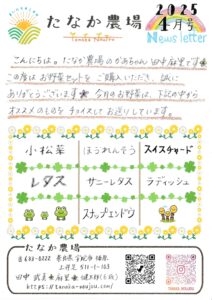 たなか農場
Tanaka Noujou
2025
4月号
News letter
こんにちは。たなか農場のかあちゃん 田中麻里です
この度はお野菜セットを ご購入いただき、誠に
ありがとうございます 今月のお野菜は、下記の中から
オススメのものを チョイスしてお送りしています。
小松菜 ほうれんそう スイスチャード
レタス サニーレタス ラディッシュ
スナップエンドウ
たなか農場
奈良県 宇陀市 榛原
https://tanaka-noujou.com/